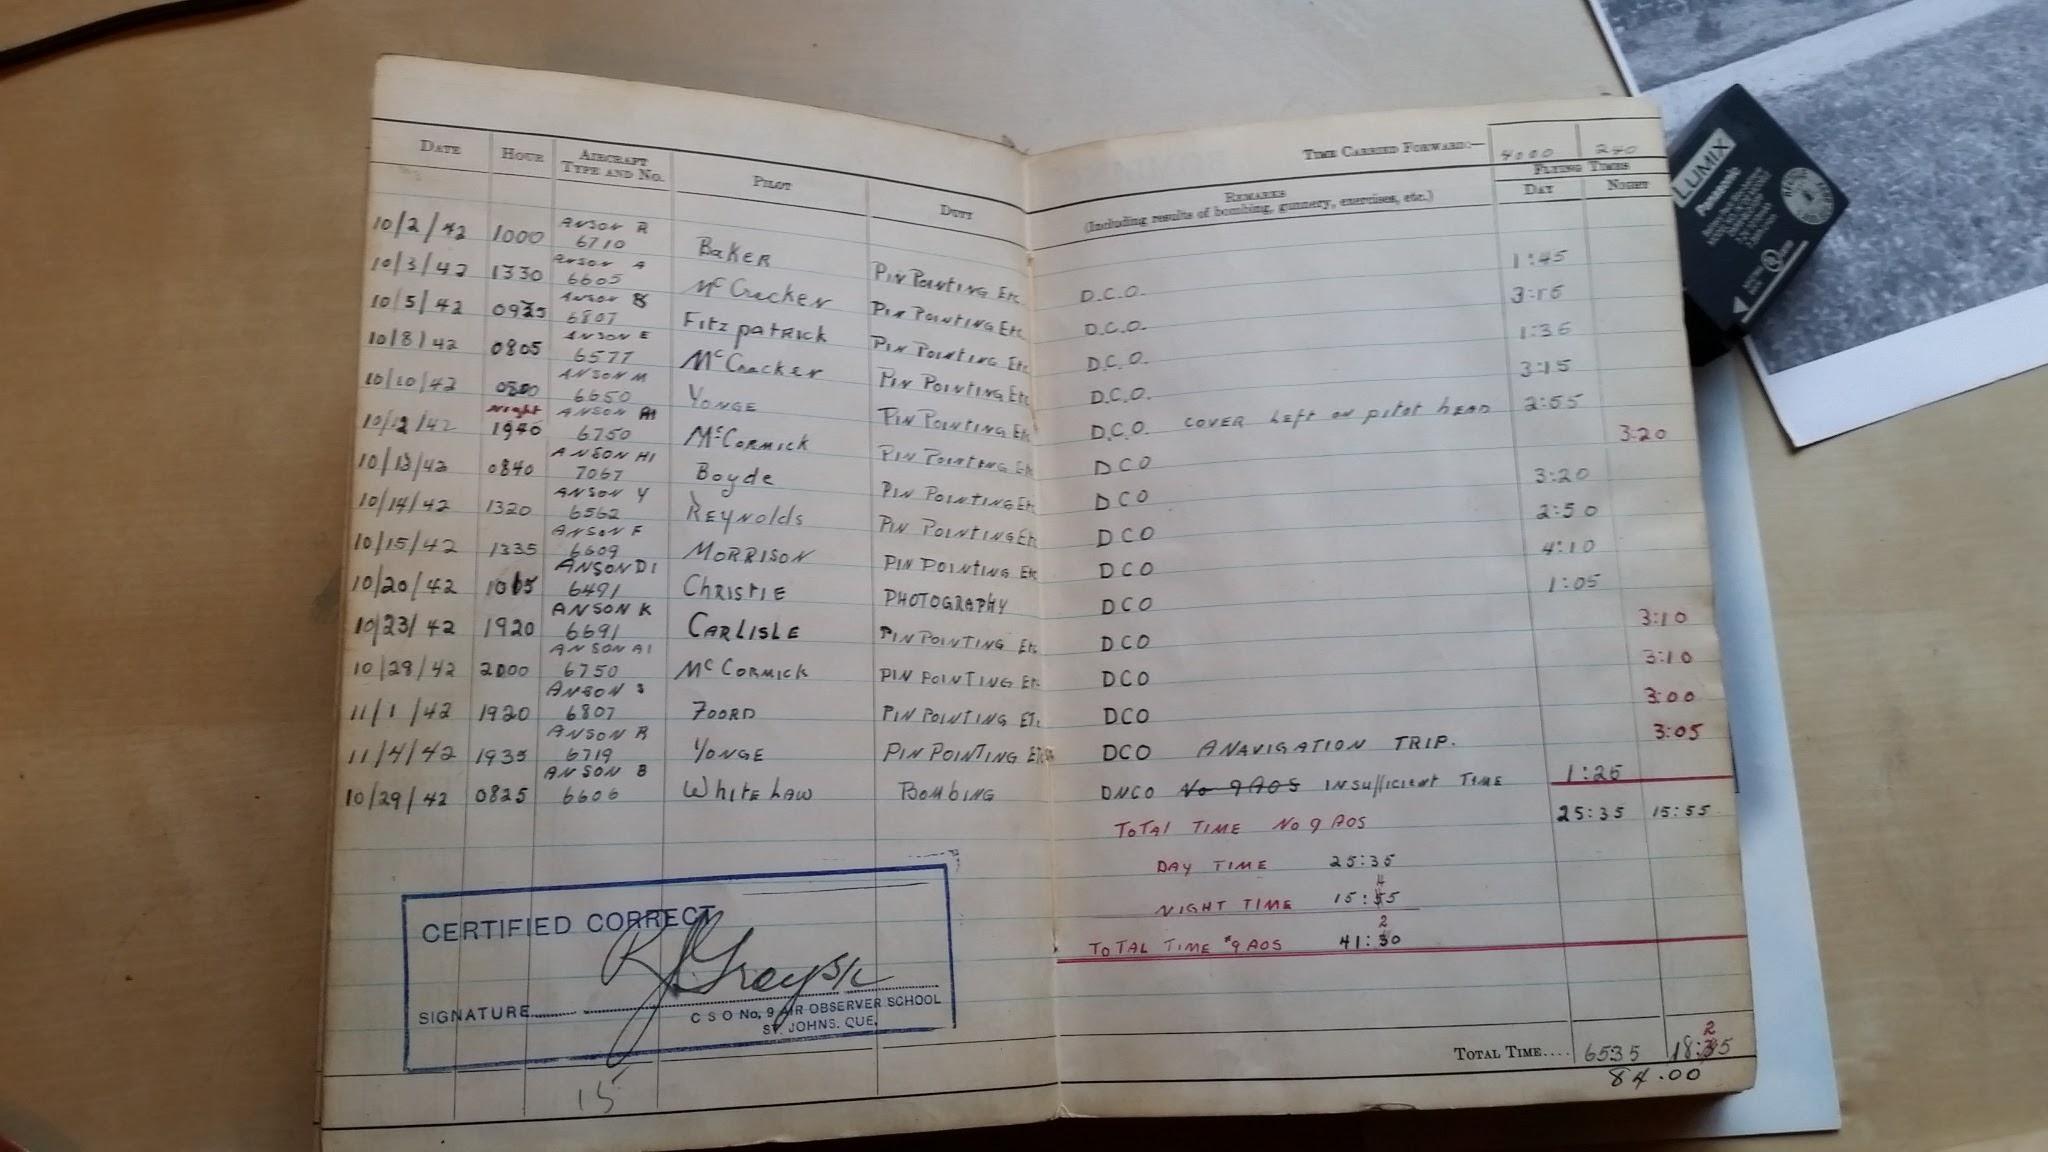 DATE HOUR AIRCRAFT TYPE AND NO. PILOT DUTY REMARKS (Including results of bombing, gunnery, exercises, etc.) TIME CARRIED FORWARD:— 4000 240
FLYING TIMES
DAY NIGHT
10/2/42 1000 ANSON R 6710 Baker PIN POINTING Etc. D.C.O. 1:45
10/3/42 1330 ANSON A 6605 McCracken PIN POINTING Etc. D.C.O. 3:15
10/5/42 0925 ANSON S 6807 Fitzpatrick PIN POINTING Etc. D.C.O. 1:35
10/8/42 0805 ANSON E 6577 McCracken PIN POINTING Etc. D.C.O. 3:15
10/10/42 0800 ANSON M 6650 YONGE PIN POINTING Etc D.C.O. COVER Left on pitot HEAD 2:55
10/12/42 Night 1940 ANSON A1 6750 McCORMICK PIN POINTING Etc DCO 3:20
10/13/42 0840 ANSON H1 7067 Boyde PIN POINTING Etc DCO 3:20
10/14/42 1320 ANSON Y 6562 REYNOLDS PIN POINTING Etc DCO 2:50
10/15/42 1335 ANSON F 6609 MORRISON PIN POINTING Etc DCO 4:10
10/20/42 1015 ANSON D1 6491 CHRISTIE PHOTOGRAPHY DCO 1:05
10/23/42 1920 ANSON K 6691 CARLISLE PIN POINTING Etc DCO 3:10
10/28/42 2000 ANSON A1 6750 McCORMICK PIN POINTING Etc DCO 3:10
11/1/42 1920 ANSON S 6807 FOORD PIN POINTING ETc DCO 3:00
11/4/42 1935 ANSON R 6719 YONGE PIN POINTING Etc DCO A NAVIGATION TRIP. 3:05
10/29/42 0825 ANSON B 6606 WHITELAW BOMBING DNCO No 9 AOS INSUFFICIENT TIME 1:25
TOTAL TIME No 9 AOS 25:35 15:55
DAY TIME 25:35
NIGHT TIME 15:55 4
TOTAL TIME #9 AOS 41:30 2
CERTIFIED CORRECT
SIGNATURE R J Gray S/L
C S O No, 9 AIR OBSERVER SCHOOL
ST. JOHNS. QUE.
TOTAL TIME.... 6535 18:35 2
84.00
15
LUMIX
Panasonic